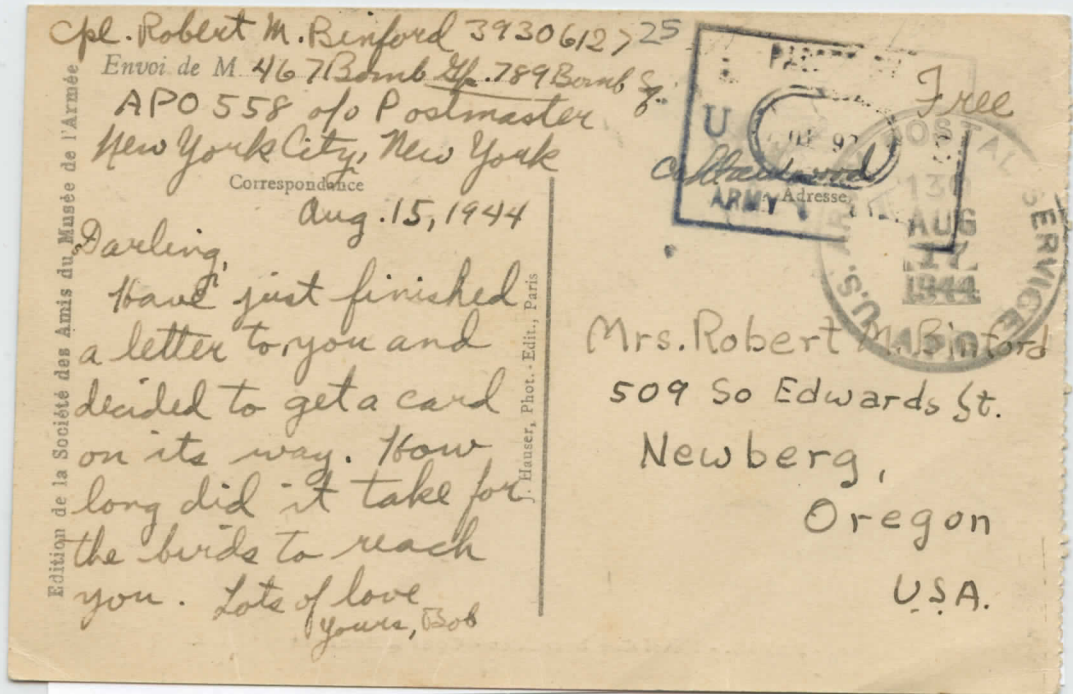 Cpl. Robert M. Binford 39306127 25
Envoi de M 467 Bomb Gp. 789 Bomb Sq.
APO 558 c/o Postmaster
New York City, New York
Correspondance
Aug. 15, 1944
Darling,
Have just finished
a letter to you and
decided to get a card
on its way. How
long did it take for
the birds to reach
you. Lots of love
Yours, Bob
Edition de la Société des Amis du Musée de l'Armée
J. Hauser, Phot. - Edit., Paris
Free
U
ARMY
Adresse
U.S. POSTAL SERVICE
130
AUG
17
1944
Mrs. Robert M. Binford
509 So Edwards St.
Newberg,
Oregon
U.S.A.